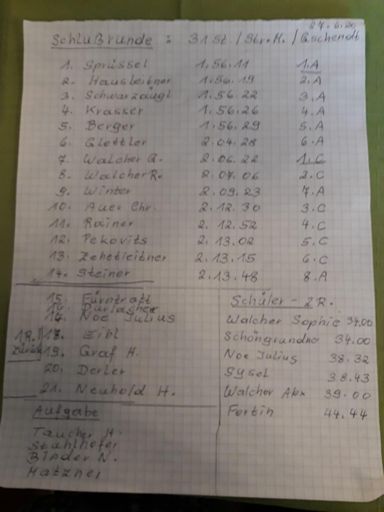 27.6.20
Schlußründe : 31 St. / Str.M. / Gschendt
1. Sprüssel 1.56.11 1.A
2. Hausleitner 1.56.19 2.A
3. Schwarzäugl 1.56.22 3.A
4. Krasser 1.56.26 4.A
5. Berger 1.56.29 5.A
6. Glettler 2.04.28 6.A
7. Walcher G. 2.06.22 1.C
8. Walcher R. 2.07.06 2.C
9. Winter 2.09.23 7.A
10. Auer Chr. 2.12.30 3.C
11. Rainer 2.12.52 4.C
12. Pekovits 2.13.02 5.C
13. Zehetleitner 2.13.15 6.C
14. Steiner 2.13.48 8.A
15. Fürntratt
Noe Julius
18. Eibl
19. Graf H.
20. Derler
21. Neuhold H.
Aufgabe
Taucher H.
Stuhlhofer
Binder N.
Schüler - 2 R.
Walcher Sophie 34.00
Schöngrundner 34.00
Noe Julius 38.32
Sysel 38.43
Walcher Alex 39.00
Fortin 44.44